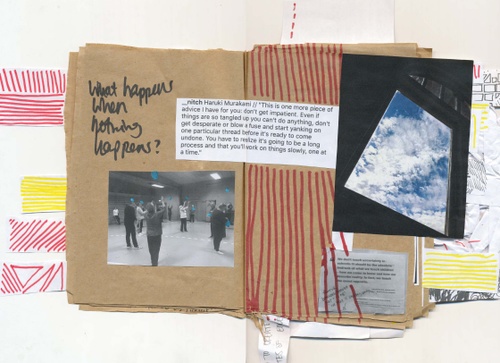 what happens
when
nothing
happens?
__nitch Haruki Murakami // "This is one more piece of
advice I have for you: don't get impatient. Even if
things are so tangled up you can't do anything, don't
get desperate or blow a fuse and start yanking on
one particular thread before it's ready to come
undone. You have to realize it's going to be a long
process and that you'll work on things slowly, one at
a time."